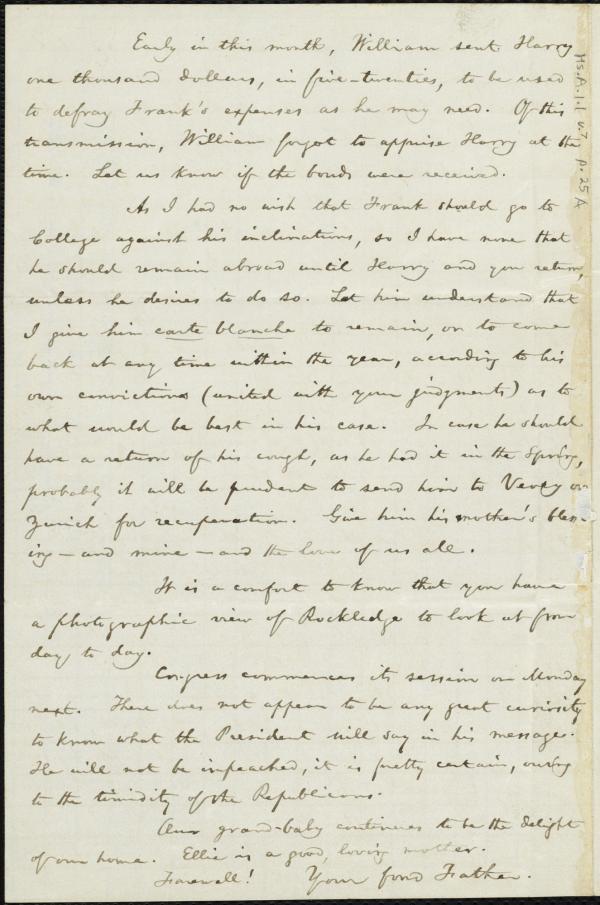 Early in this month, William sent Harry
one thousand dollars, in five-twenties, to be used
to defray Frank's expenses as he may need. Of this
transmission, William forgot to apprise Harry at the
time. Let us know if the bonds were received.
As I had no wish that Frank should go to
College against his inclinations, so I have none that
he should remain abroad until Harry and you return,
unless he desires to do so. Let him understand that
I give him carte blanche to remain, or to come
back at any time within the year, according to his
own convictions (united with your judgments) as to
what would be best in his case. In case he should
have a return of his cough, as he had it in the Spring,
probably it will be prudent to send him to Vevey or
Zurich for recuperation. Give him his mother's bless-
ing—and mine—and the love of us all.
It is a comfort to know that you have
a photographic view of Rockledge to look at from
day to day.
Congress commences its session on Monday
next. There does not appear to be any great curiosity
to know what the President will say in his message.
He will not be impeached, it is pretty certain, owing
to the timidity of the Republicans.
Our grand-baby continues to be the delight
of our home. Ellie is a good, loving mother.
Farewell! Your fond Father.
Ms.A.1.1 v.7 p.25A